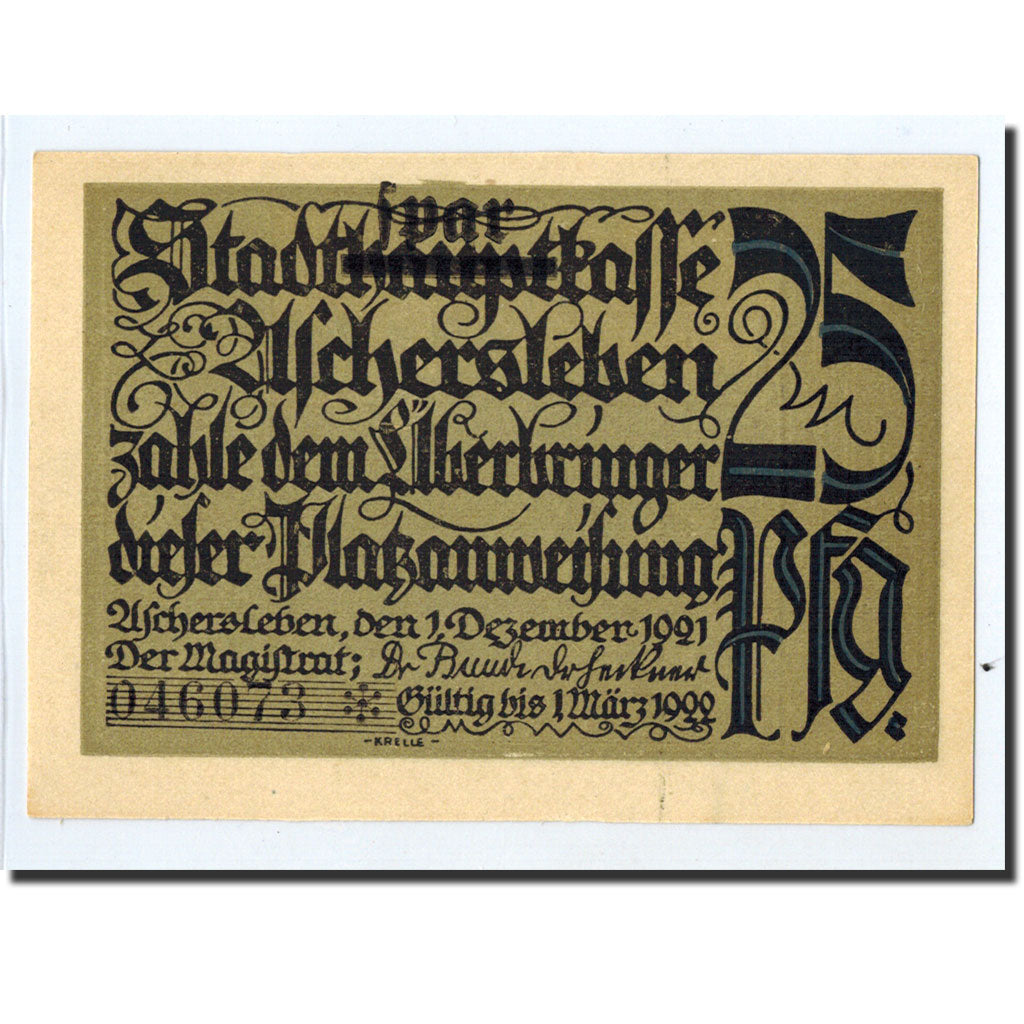 spar
Stadthauptkasse
Aschersleben
zahle dem Überbringer
dieser Platzanweisung
Aschersleben, den 1. Dezember 1921
Der Magistrat;
046073
Gültig bis 1. März 1922
-KRELLE-
25
Pfg.